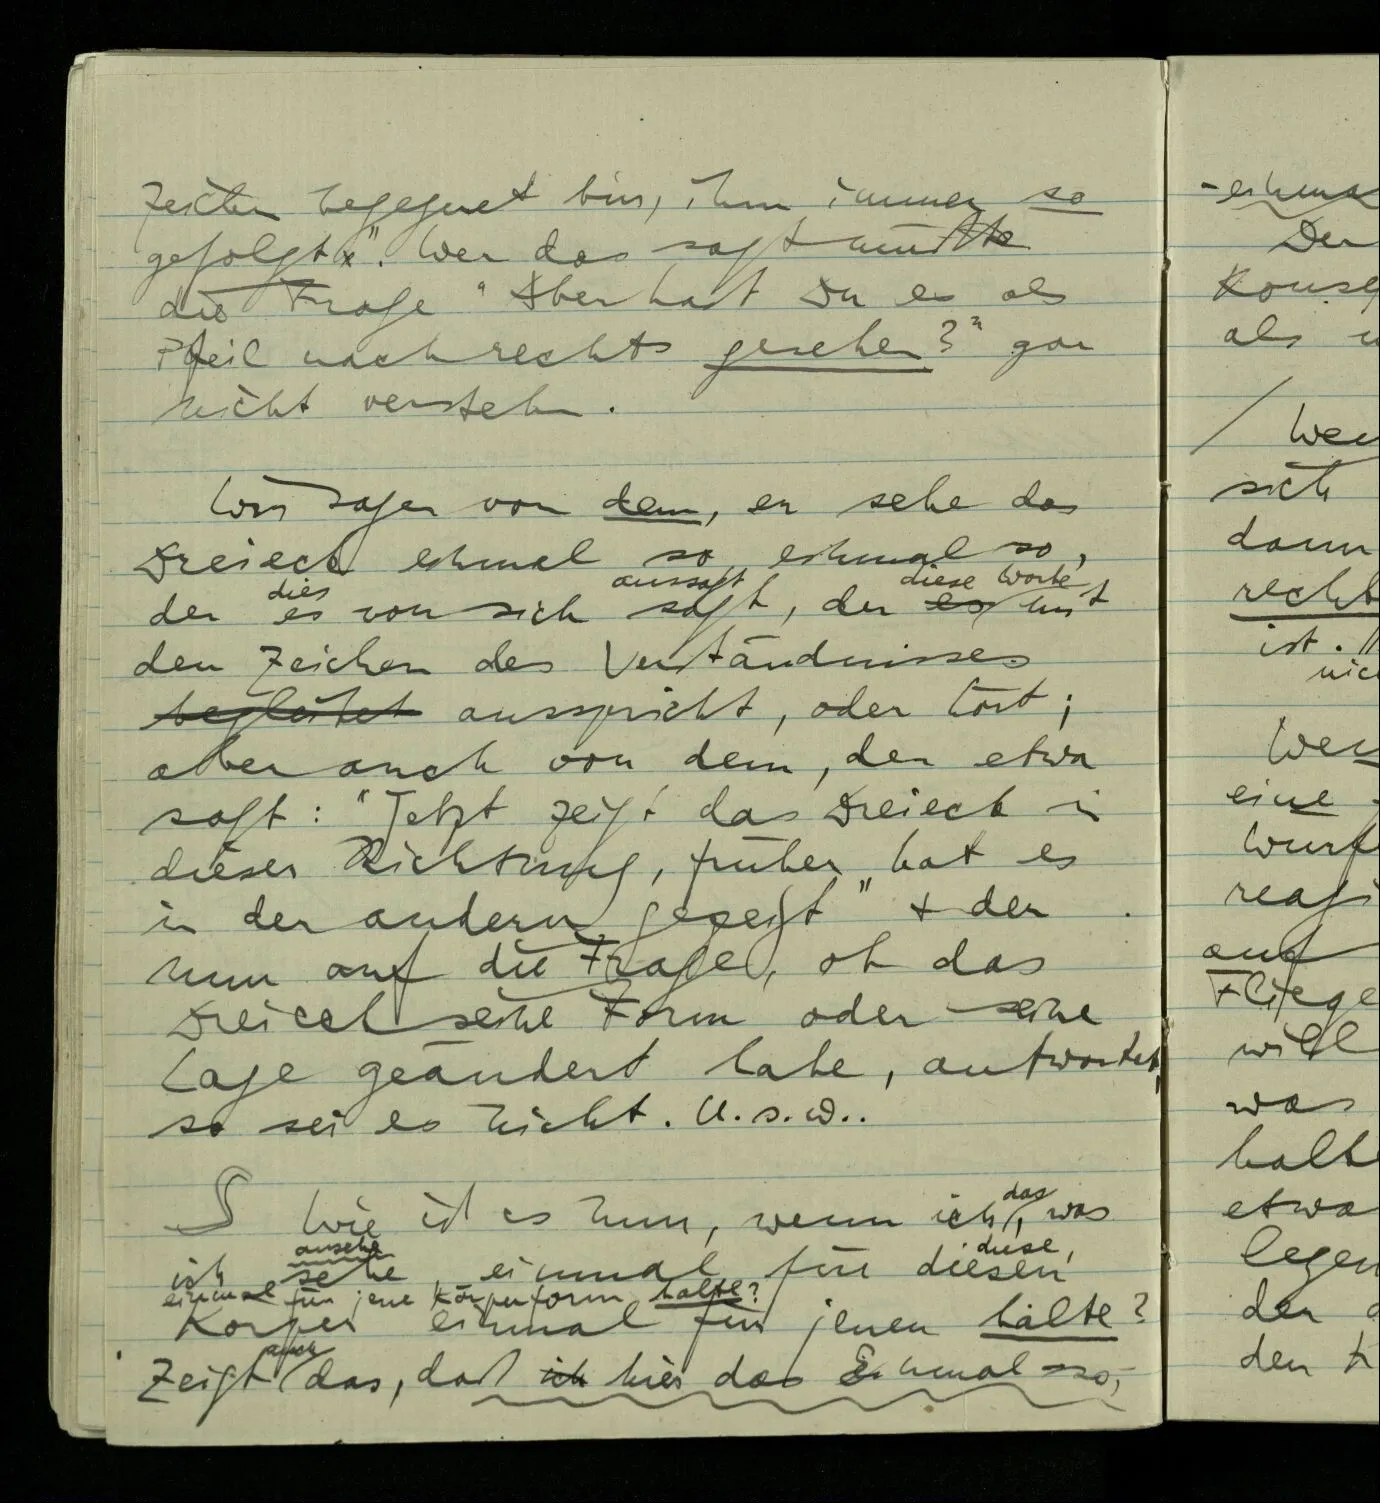 Zeichen begegnet bin, ihm immer so
gefolgt". Wer das sagt müßte
die Frage "Aber hast Du es als
Pfeil nach rechts gesehen?" gar
nicht verstehn.
Wir sagen von dem, er sehe das
Dreieck einmal so, einmal so,
dies aussagt diese Worte
der es von sich sagt, der es mit
den Zeichen des Verständnisses
begleitet ausspricht, oder hört;
aber auch von dem, der etwa
sagt: "Jetzt zeigt das Dreieck in
dieser Richtung, früher hat es
in der andern gezeigt" + der
nun auf die Frage, ob das
Dreieck seine Form oder seine
Lage geändert habe, antwortet,
so sei es nicht. U.s.w..
das
S Wie ist es nun, wenn ich, was
ansehe diese,
ich sehe, einmal für diesen
einmal für jene Körperform halte?
Körper einmal für jenen halte?
auch
Zeigt das, daß ich hier das Einmal so,-
-einmal
Der
Konseq
als u
/ Wen
sich
dann
recht
ist. "
nic
Wer
eine
Wurf
reagi
auf
Fliege
will
was
halt
etwa
legen
der
den